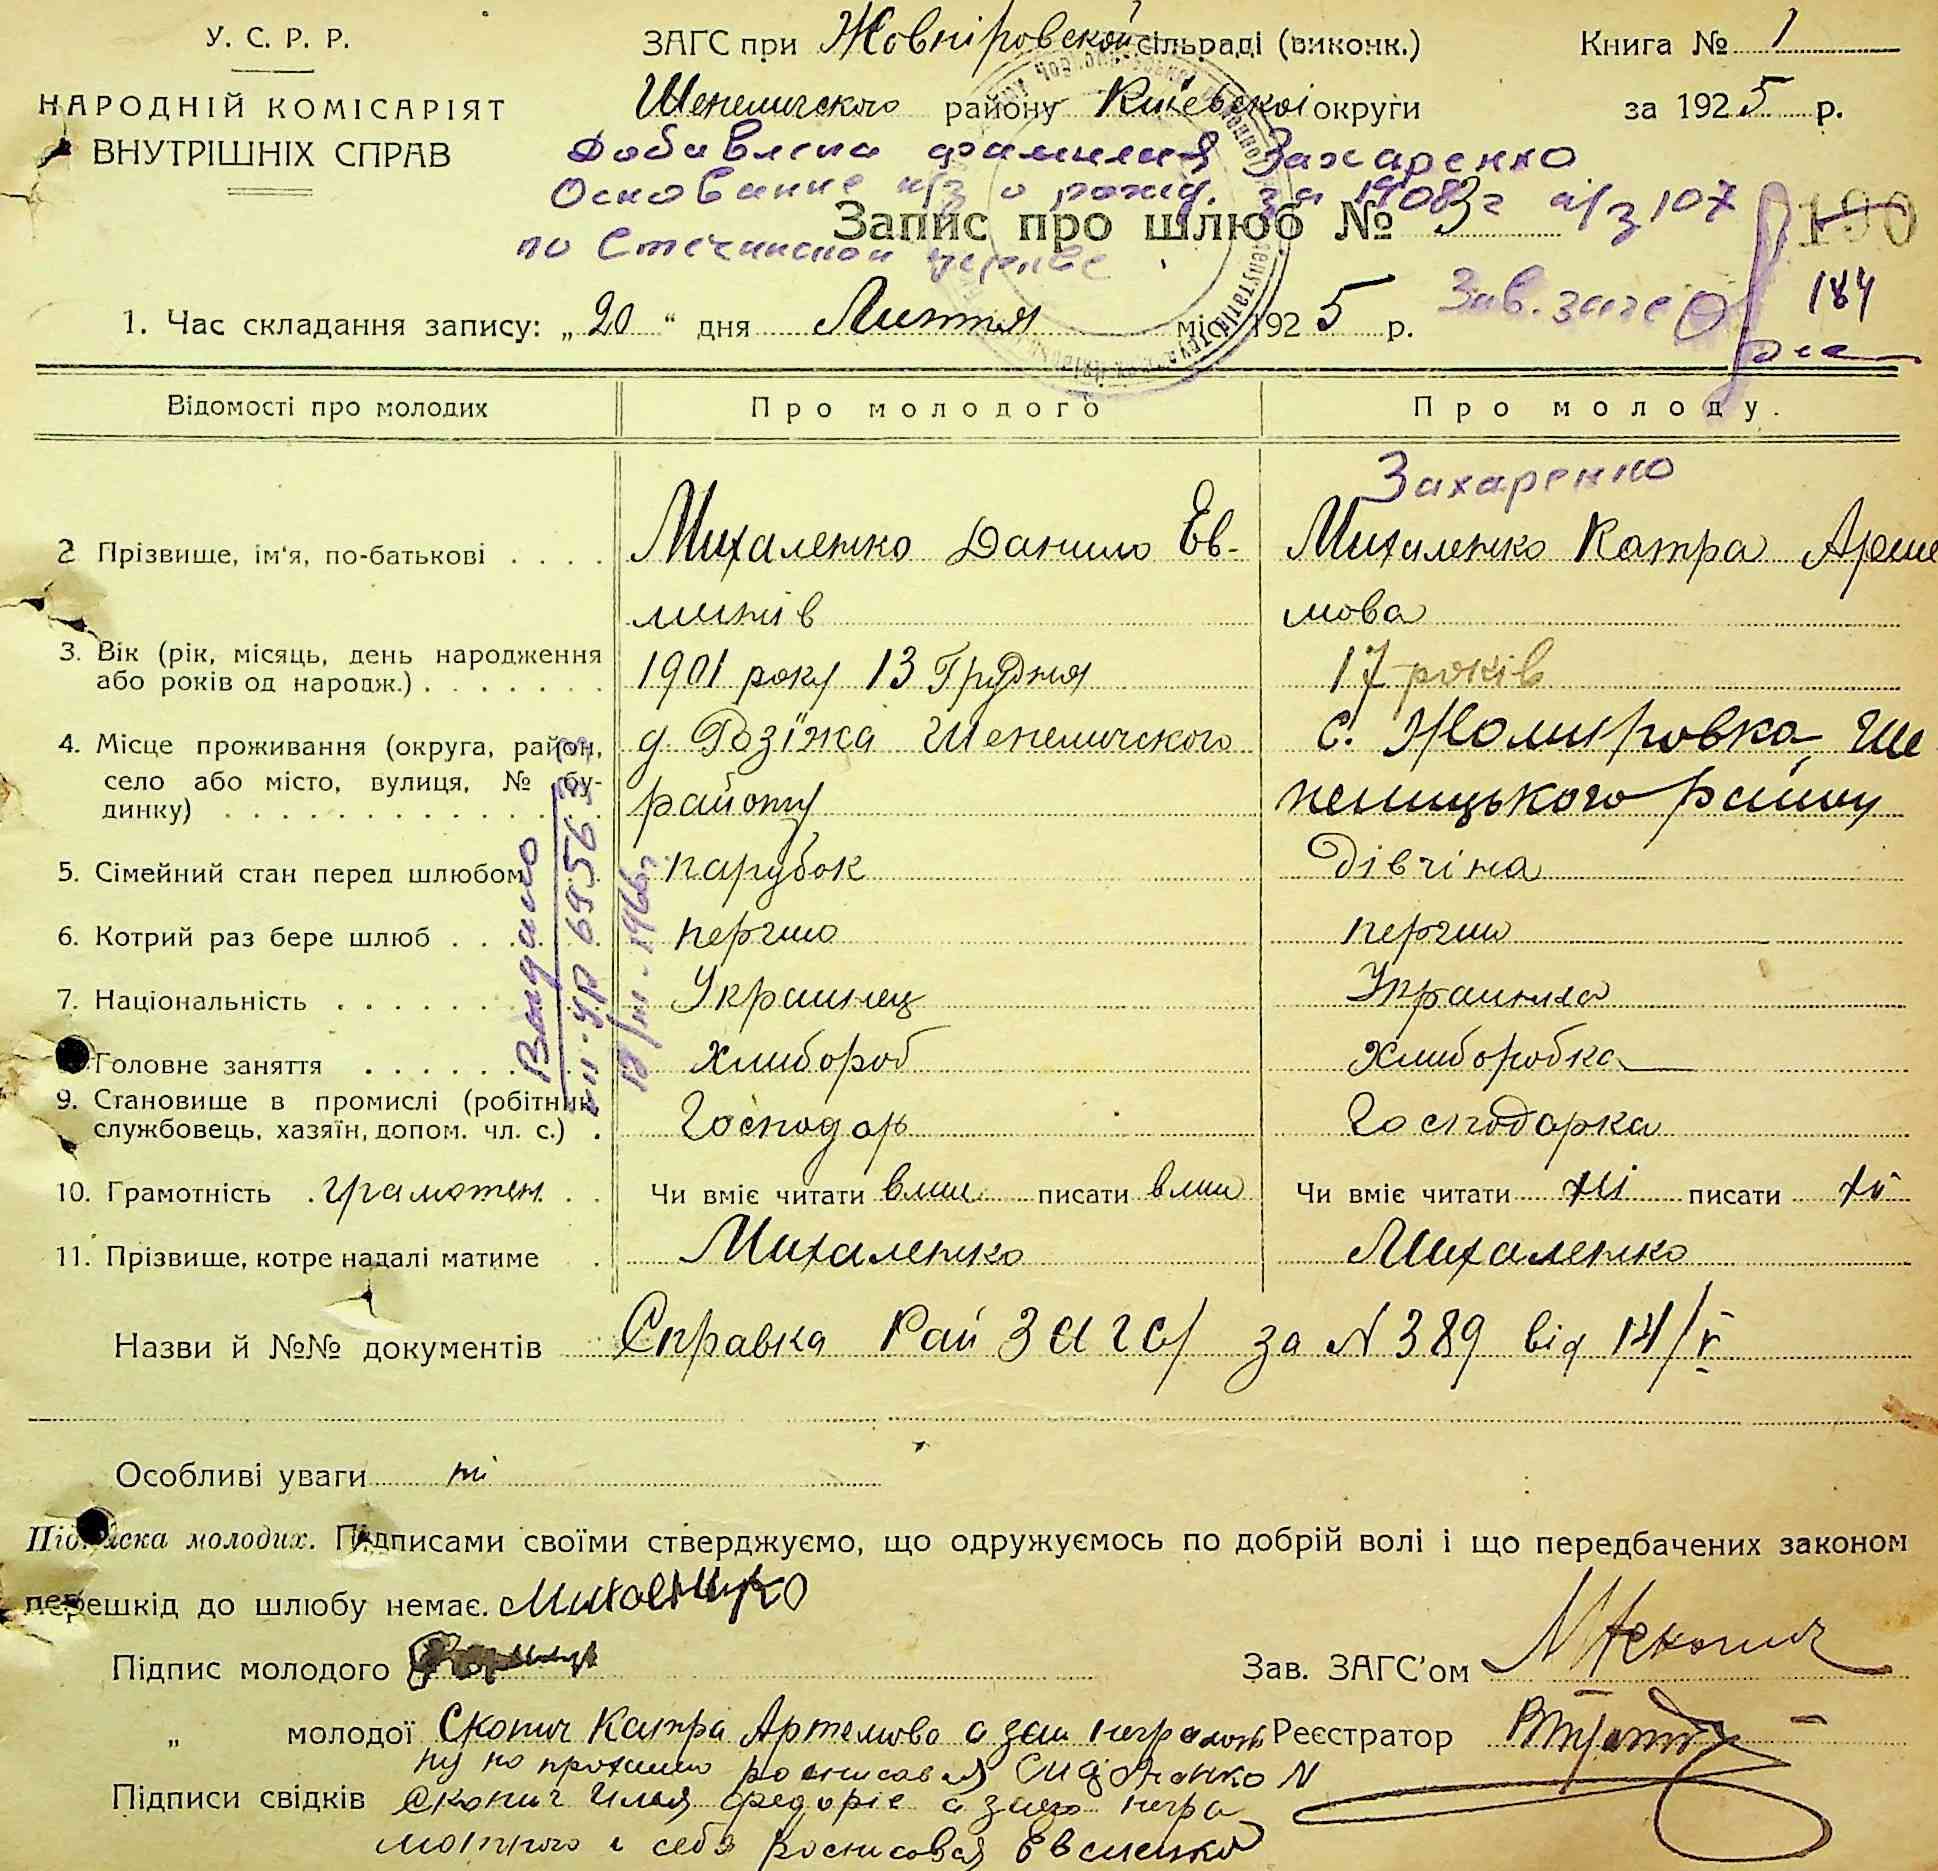 У. С. Р. Р.
НАРОДНІЙ КОМІСАРІЯТ
ВНУТРІШНІХ СПРАВ
ЗАГС при Жовніровской сільраді (виконк.)
Книга № 1
району Киевскої округи
за 1925 р.
Добавлена фамилия Захаренко
Основание а/з о рожд. за 1908 г а/з 107
по Стечинской церкве
Запис про шлюб № 3
190
184
Зав. загс
1. Час складання запису: „20“ дня Липня міс. 1925 р.
Відомості про молодих
Про молодого
Про молоду.
Захаренко
2 Прізвище, ім'я, по-батькові . . . .
Михаленко Данило Ев-
минів
Михаленко Катра Арте
мова
3. Вік (рік, місяць, день народження
або років од народж.) . . . . . . .
1901 року 13 Грудня
17 років
4. Місце проживання (округа, район,
село або місто, вулиця, № бу-
динку) . . . . . . . . . . . . .
д. Розїжа
району
с.
району
5. Сімейний стан перед шлюбом
парубок
дівчіна
6. Котрий раз бере шлюб . . .
перший
перший
7. Національність . . . . . .
Украинец
Украинка
Головне заняття . . . . . .
хлибороб
хлиборобка
9. Становище в промислі (робітник,
службовець, хазяїн, допом. чл. с.) .
Господарь
Господарка
10. Грамотність . грамотен . .
Чи вміє читати вмие писати вмие
Чи вміє читати ні писати ні
11. Прізвище, котре надалі матиме .
Михаленко
Михаленко
Выдано
III-УР 695633
18/III-1966г.
Назви й №№ документів Справка Рай ЗАГСу за N 389 від 14/V
Особливі уваги ні
Підписка молодих. Підписами своїми стверджуємо, що одружуємось по добрій волі і що передбачених законом
перешкід до шлюбу немає. Михаленко
Підпис молодого
Зав. ЗАГС'ом
„ молодої Скопич Катра Артемова а зам неграмот
Реєстратор
ну по прохани росписався Сидоренко
Підписи свідків Скопич Илля а замо негра
мотного и себе росписовся Евсиенко